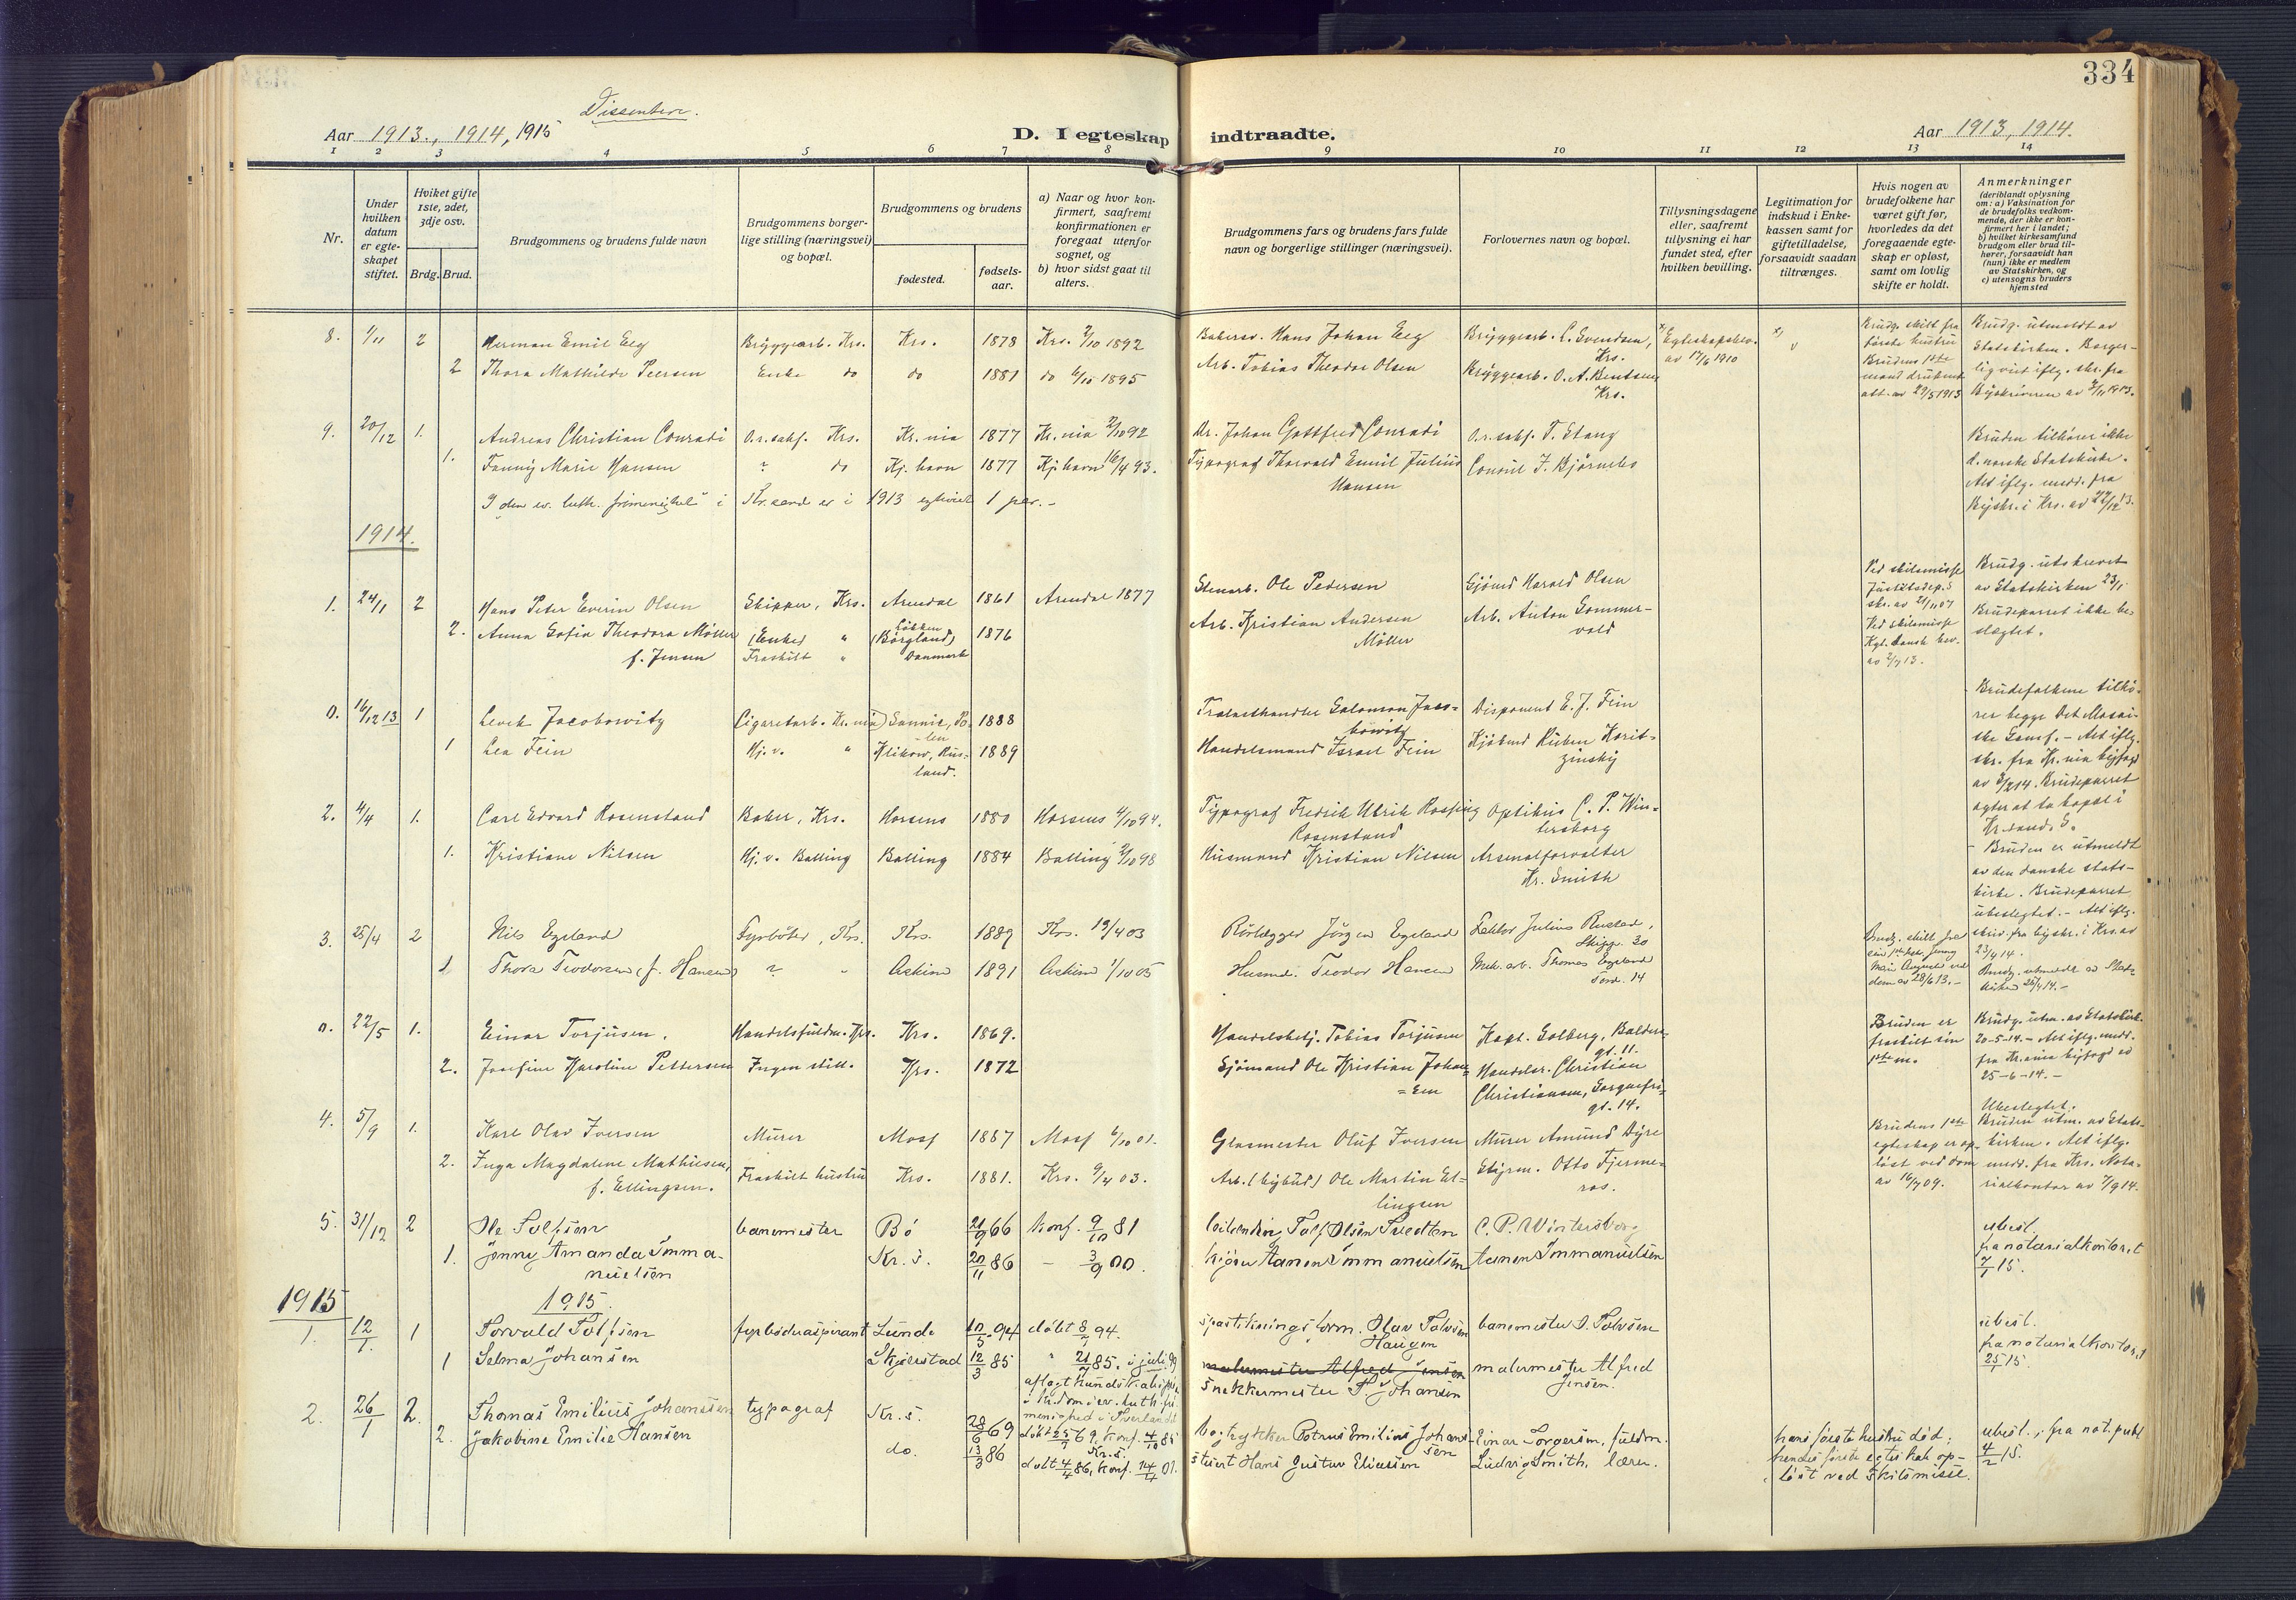 334
Dissentere.
Aar 1913., 1914, 1915
D. I egteskap indtraadte.
Aar 1913, 1914.
1 2 3 4 5 6 7 8 9 10 11 12 13 14
Nr.
Under hvilken datum er egte-skapet stiftet.
Hviket gifte 1ste, 2det, 3dje osv.
Brdg. Brud.
Brudgommens og brudens fulde navn
Brudgommens borger-lige stilling (næringsvei) og bopæl.
Brudgommens og brudens
fødested.
fødsels-aar.
a) Naar og hvor kon-firmert, saafremt konfirmationen er foregaat utenfor sognet, og
b) hvor sidst gaat til alters.
Brudgommens fars og brudens fars fulde navn og borgerlige stillinger (næringsvei).
Forlovernes navn og bopæl.
Tillysningsdagene eller, saafremt tillysning ei har fundet sted, efter hvilken bevilling.
Legitimation for indskud i Enke-kassen samt for giftetilladelse, forsaavidt saadan tiltrænges.
Hvis nogen av brudefolkene har været gift før, hvorledes da det foregaaende egte-skap er opløst, samt om lovlig skifte er holdt.
Anmerkninger
(deriblandt oplysning om: a) Vaksination for de brudefolks vedkom-mende, der ikke er kon-firmert her i landet; b) hvilket kirkesamfund brudgom eller brud til-hører, forsaavidt han (hun) ikke er medlem av Statskirken, og c) utensogns bruders hjemsted
8. 1/11 2 Herman Emil Eeg Bryggearb. Krs. Krs. 1878 Krs. 2/10 1892 Bakersv. Hans Johan Eeg Bryggearb. C. Svendsen, Krs. Egteskapsbev. av 17/6 1910
2 Thora Mathilde Petersen Enke do do 1881 do 6/10 1895 Arb. Tobias Theodor Olsen Bryggearb. O. A. Bentsen, Krs.
Brudg. skilt fra første hustru
Brudens 1ste mand druknet att. av 29/5 1913
Brudg. utmeldt av Statskirken. Borger-lig viet iflg. skr. fra Byskriveren av 3/11 1913.
9. 20/12 1. Andreas Christian Conradi O.r.sakf. Krs. Kr.nia 1877 Kr.nia 2/10 92 Dr. Johan Gottfred Conradi O.r.sakf. T. Stang
1. Fanny Marie Hansen ? do Kj.havn 1877 Kj.havn 16/4 93. Typograf Thorvald Emil Julius Hansen Consul F. Bjørnebo
Bruden tilhører ikke d. norske Statskirke. Alt iflg. medd. fra Byskr. i Krs. av 22/12 13.
I den ev. luth. frimenighet i Kr.sand er i 1913 egteviet 1 par. -
1914.
1. 24/1 2 Hans Peter Everin Olsen Skipper, Krs. Arendal 1861 Arendal 1877 Stenarb. Ole Pedersen Sjømd Harald Olsen
2. Anna Sofie Theodora Møller f. Jensen (Enke) " Fraskilt " Løkken (Børglund) Danmark 1876 Arb. Kristian Andersen Møller Arb. Anton Sommer-vold
Ved skilsmisse Justitsdep.s skr. av 21/11 07
Ved skilsmisse Kgl. dansk bev. av 2/7 13.
Brudg. utskrevet av Statskirken 23/1
Brudeparret ikke be-slegtet.
0. 16/12 13 1 Leveh Jacobowitz Cigaretarb. Kr.nia Sannic, Po-len 1888 Trælasthandler Salomon Jaco-bowitz Disponent E. J. Fein
1 Lea Fein Hj.v. " Klikow, Rus-land. 1889 Handelsmand Israel Fein Kjøbmd Ruben Horit-zinsky
Brudefolkene tilhø-rer begge Det Mosai-ske Samf. - Alt iflg. skr. fra Kr.nia byfogd av 3/2 14. Brudeparret agter at ta bopæl i Kr.sand. S.
2. 4/4 1. Carl Edvard Rosenstand Baker, Krs. Horsens 1880 Horsens 4/10 94. Typograf Fredrik Ulrik Rosping Rosenstand Optikus C. P. Win-tersborg
1. Kristiane Nilsen Hj.v. Balling Balling 1884 Balling 2/10 98 Husmand Kristian Nilsen Arsenalforvalter Kr. Smith
- Bruden er utmeldt av den danske stats-kirke. Brudeparret ubeslegtet. - Alt iflg. skriv. fra byskr. i Krs. av 23/4 14.
3. 25/4 2 Nils Egeland Fyrbøter, Krs. Krs. 1889 Krs. 19/4 03 Rørlægger Jørgen Egeland Lektor Julius Rustad, Skipp. 30
1 Thora Teodorsen (f. Hansen) ? " Askim 1891 Askim 1/10 05 Husmd. Teodor Hansen Mek. arb. Thomas Egeland Tord. 14
Brudg. skilt fra sin 1ste Jenny Marie Auguste ved dom av 28/6 13. -
Brudg. utmeldt av Stats-kirken 25/4 14. -
0. 22/5 1. Einar Torjusen. Handelsfuldm. Krs. Krs. 1869. Handelsbetj. Tobias Torjusen Kapt. Solberg, Balders-gt. 11.
2. Josefine Karoline Pettersen Ingen still. Krs. 1872 Sjømand Ole Kristian Johan-sen Handelsr. Christian Christiansen, Sorgenfri-gt. 14.
Bruden er fraskilt sin 1ste m.
Brudg. utm. av Statskirk. 20-5-14. - Alt iflg. medd. fra Kr.nia byfogd av 25-6-14. -
4. 5/9 1. Karl Olav Iversen Murer Moss 1887 Moss 6/10 01. Glasmester Oluf Iversen Murer Amund Dyre
2. Inga Magdalene Mathiesen, f. Ellingsen. Fraskilt hustru Krs. 1881. Krs. 9/4 03. Arb. (bybud) Ole Martin El-lingsen Styrm. Otto Fjerme-ros.
Brudens 1ste egteskap er op-løst ved dom av 16/7 09.
Ubeslegtet.
Bruden utm. av Stats-kirken. Alt iflg. medd. fra Krs. Nota-rialkontor av 7/9 14.
5. 31/12 2 Ole Tolfsen banemester Bø 21/9 66 konf. 9/10 81 Tolf Olsen Tvedten C. P. Wintersborg
1. Jenny Amanda Imma-nuelsen Kr. s. 20/11 86 - 3/9 00. Aanen Immanuelsen Aanen Immanuelsen
ubesl. fra notarialkontoret 7/1 15.
1915
1915.
1. 12/1. 1 Torvald Tolfsen fyrbøderaspirant Lunde 10/5 94 døbt 8/7 94. Olav Tolvsen Haugen banemester O. Tolvsen
1 Selma Johansen Skjerstad 12/3 85 " 21/7 85, i juli 99 aflagt kundskabsprøve
malermester Alfred Jensen
snekkermester P. Johansen malermester Alfred Jensen.
ubesl. fra notarialkontoret 25/1 15.
2. 26/1 2. Thomas Emilius Johanssen typograf Kr. s. 28/6 69 døbt 25/7 69, konf. 4/10 85 Kr. s. Bogtrykker Petrus Emilius Johans-sen Einar Torgersen, fuldm.
2. Jakobine Emilie Hansen do. 13/3 86 døbt 4/4 86, konf. 14/4 01. stuert Hans Gustav Eliassen Ludvig Smith, lærer.
hans første hustru død; hendes første egteskab op-løst ved skilsmisse.
ubesl., fra not. publ 4/2 15.